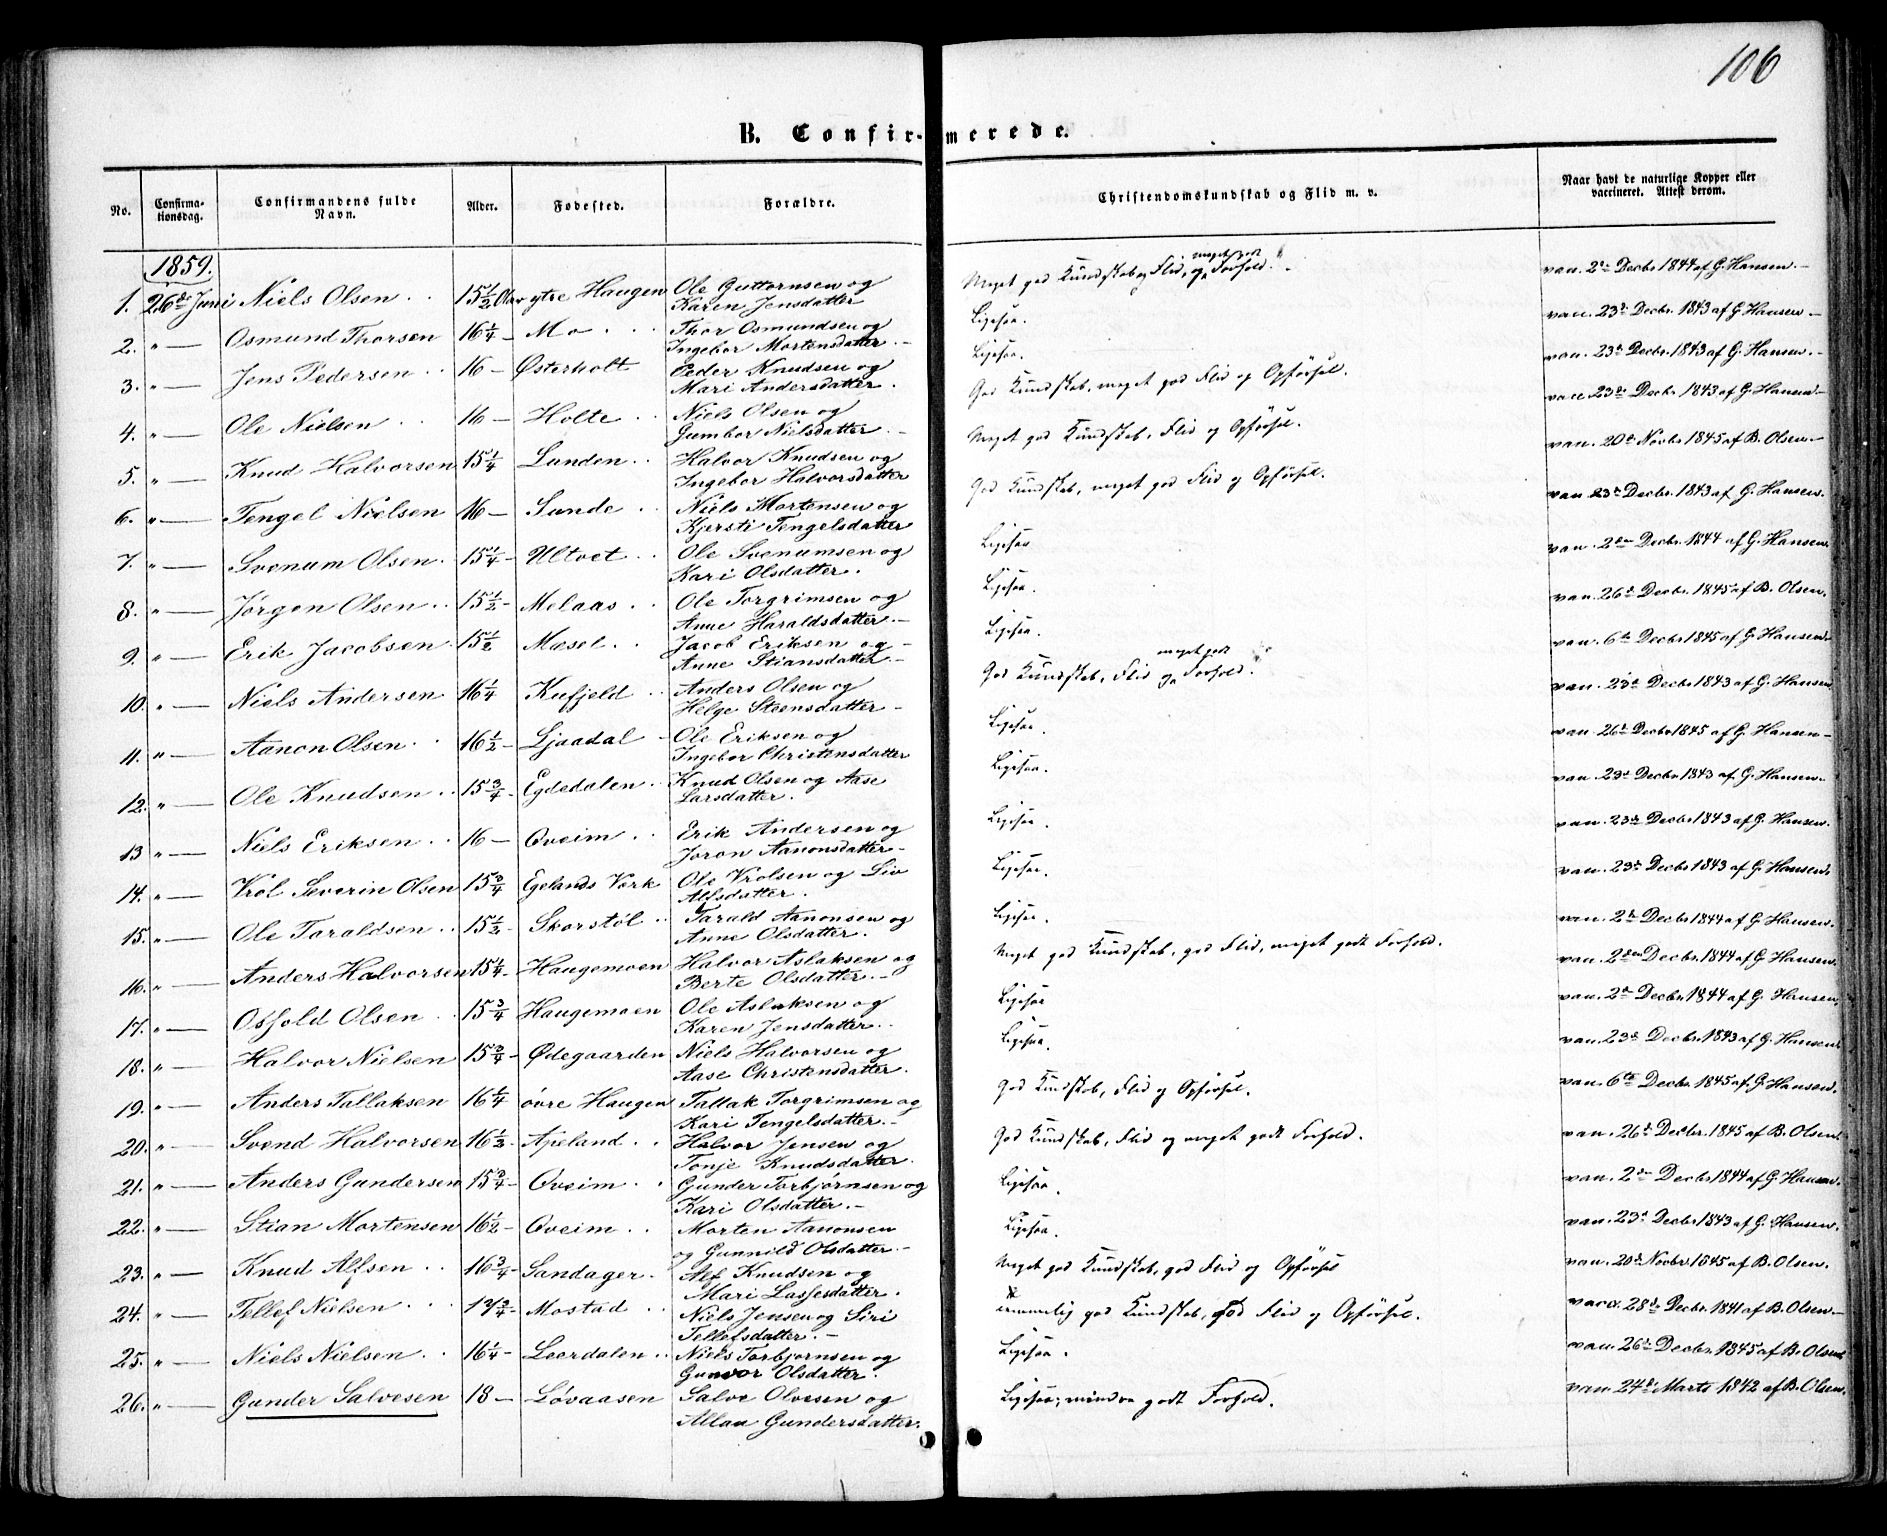 106
B. Confirmerede.
No. Confirmationsdag. Confirmandens fulde Navn. Alder. Fødested. Forældre. Christendomskundskab og Flid m. v. Naar havt de naturlige Kopper eller vaccineret. Attest derom.
1859.
1. 26de Juni Niels Olsen 15 1/2 ytre Haugen Ole Guttormsen og Karen Jensdatter Meget god Kundskab og Flid, og meget godt Forhold. vac. 2den Decbr 1844 af G. Hansen
2. " Osmund Thorsen 16 1/4 Mo Thor Osmundsen og Ingebor Mortensdatter Ligesaa. vac. 23de Decbr. 1843 af G. Hansen
3. " Jens Pedersen 16 Østerholt Peder Knudsen og Mari Andersdatter Ligesaa. vac. 23de Decbr. 1843 af G. Hansen
4. " Ole Nielsen 16 Holte Niels Olsen og Gumbor Nielsdatter God Kundskab, meget god Flid og Opførsel. vac. 23de Decbr. 1843 af G. Hansen
5. " Knud Halvorsen 15 1/4 Lunden Halvor Knudsen og Ingebor Halvorsdatter Meget god Kundskab, Flid og Opførsel. vac. 20de Novbr. 1845 af B. Olsen
6. " Tengel Nielsen 16 Sunde Niels Mortensen og Kjersti Tengelsdatter God Kundskab, meget god Flid og Opførsel. vac. 23de Decbr. 1843 af G. Hansen.
7. " Svenum Olsen 15 1/4 Ultvet Ole Svenumsen og Kari Olsdatter. Ligesaa vac. 2den Decbr. 1844 af G. Hansen.
8. " Jørgen Olsen 15 1/2 Melaas Ole Torgrimsen og Anne Haraldsdatter. Ligesaa. vac. 26de Decbr. 1845 af B. Olsen.
9. " Erik Jacobsen 15 1/2 Mæsel Jacob Eriksen og Anne Stiansdatter. Ligesaa. vac. 6te Decbr. 1845 af G. Hansen
10. " Niels Andersen 16 1/4 Kufjeld Anders Olsen og Helge Steensdatter God Kundskab, Flid og meget godt Forhold. vac. 23de Decbr. 1843 af G. Hansen
11. " Aanon Olsen 16 1/2 Ljaadal Ole Eriksen og Ingebor Christensdatter Ligesaa. vac. 26de Decbr 1845 af G. Hansen
12. " Ole Knudsen 15 3/4 Egdedalen Knud Olsen og Aase Larsdatter. Ligesaa. vac. 23de Decbr. 1843 af G. Hansen.
13 " Niels Eriksen 16 Oveim Erik Andersen og Joron Aanonsdatter Ligesaa. vac. 23de Decbr. 1843 af G. Hansen.
14. " Vrol Severin Olsen 15 3/4 Egelands Verk Ole Vrolsen og Liv Alfsdatter. Ligesaa. vac. 23de Decbr. 1843 af G. Hansen.
15. " Ole Taraldsen 15 1/2 Skorstøl Tarald Aanonsen og Anne Olsdatter. Ligesaa. vac. 2den Decbr. 1844 af G. Hansen.
16. " Anders Halvorsen 15 1/4 Haugemoen Halvor Aslaksen og Berte Olsdatter. Meget god Kundskab, god Flid, meget godt Forhold. vac. 2den Decbr. 1844 af G. Hansen.
17. " Osfold Olsen 15 3/4 Haugemoen Ole Aslaksen og Karen Jensdatter. Ligesaa vac. 2den Decbr. 1844 af G. Hansen.
18. " Halvor Nielsen 15 3/4 Ødegaarden Niels Halvorsen og Aase Christensdatter. Ligesaa. vac. 23de Decbr. 1843 af G. Hansen.
19. " Anders Tallaksen 16 1/4 øvre Haugen Tallak Torgrimsen og Kari Tengelsdatter. God Kundskab, Flid og Opførsel. vac. 6te Decbr. 1845 af G. Hansen.
20. " Svend Halvorsen 16 1/2 Apeland Halvor Jensen og Tonje Knudsdatter. God Kundskab, Flid og meget godt Forhold. vac. 26de Decbr. 1845 af B. Olsen.
21. " Anders Gundersen 15 3/4 Oveim Gunder Torbjørnsen og Kari Olsdatter. Ligesaa. vac. 2den Decbr. 1844 af G. Hansen.
22. " Stian Mortensen 16 1/2 Oveim Morten Aanonsen og Gunnild Olsdatter. Ligesaa. vac. 23de Decbr. 1843 af G. Hansen.
23. " Knud Alfsen 16 3/4 Sandager Alf Knudsen og Mari Lassesdatter. Meget god Kundskab, god Flid og Opførsel vac. 20de Novbr. 1845 af B. Olsen.
24. " Tellef Nielsen 17 3/4 Mostad Niels Jensen og Siri Tellefsdatter. Temmelig god Kundskab, god Flid og Opførsel. vacc. 28de Decbr. 1841 af B. Olsen
25. " Niels Nielsen 16 1/4 Leerdalen Niels Torbjørnsen og Gunvor Olsdatter. Ligesaa. vac. 26de Decbr. 1845 af B. Olsen
26. " Gunder Salvesen 18 Løvaasen Salve Olvesen og Allau Gundersdatter. Ligesaa; mindre godt Forhold. vac. 24de Marts 1842 af B. Olsen.